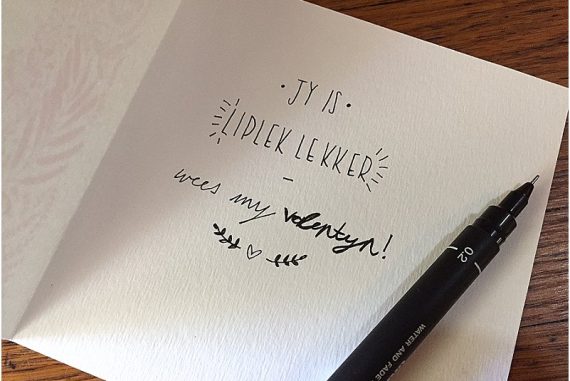 • JY IS •
LIPLEK LEKKER
–
wees my valentyn!
0.2
WATER AND FADE